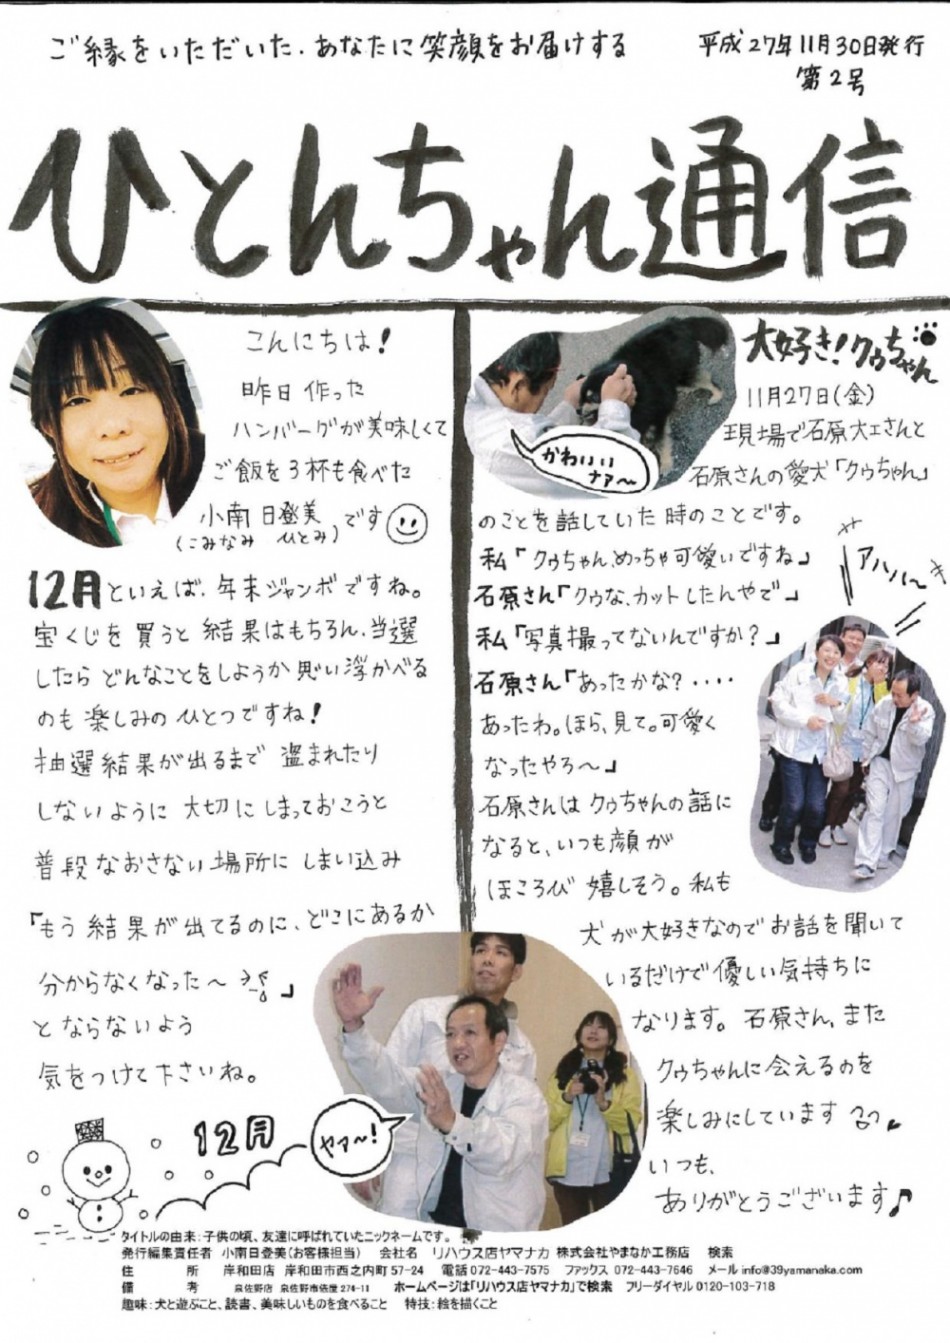 ご縁をいただいた、あなたに笑顔をお届けする
平成27年11月30日発行
第2号
ひとんちゃん通信
こんにちは!
昨日作った
ハンバーグが美味しくて
ご飯を3杯も食べた
小南 日登美です
(こみなみ ひとみ)
12月といえば、年末ジャンボですね。
宝くじを買うと結果はもちろん、当選
したらどんなことをしようか思い浮かべる
のも楽しみのひとつですね!
抽選結果が出るまで盗まれたり
しないように大切にしまっておこうと
普段なおさない場所にしまい込み
「もう結果が出てるのに、どこにあるか
分からなくなった〜」
とならないよう
気をつけて下さいね。
12月
ヤァ〜!
かわいい
ナァ〜
大好き!クゥちゃん
11月27日(金)
現場で石原大工さんと
石原さんの愛犬「クゥちゃん」
のことを話していた時のことです。
私「クゥちゃん、めっちゃ可愛いですね」
石原さん「クゥな、カットしたんやで」
私「写真撮ってないんですか?」
石原さん「あったかな?・・・・
あったわ。ほら、見て。可愛く
なったやろ〜」
アハハ〜
石原さんはクゥちゃんの話に
なると、いつも顔が
ほころび嬉しそう。私も
犬が大好きなのでお話を聞いて
いるだけで優しい気持ちに
なります。石原さん、また
クゥちゃんに会えるのを
楽しみにしています
いつも、
ありがとうございます♪
タイトルの由来:子供の頃、友達に呼ばれていたニックネームです。
発行編集責任者 小南日登美(お客様担当) 会社名 リハウス店ヤマナカ 株式会社やまなか工務店 検索
住 所 岸和田店 岸和田市西之内町57-24 電話072-443-7575 ファックス 072-443-7646 メール info@39yamanaka.com
備 考 泉佐野店 泉佐野市俵屋274-11 ホームページは「リハウス店ヤマナカ」で検索 フリーダイヤル0120-103-718
趣味:犬と遊ぶこと、読書、美味しいものを食べること 特技:絵を描くこと